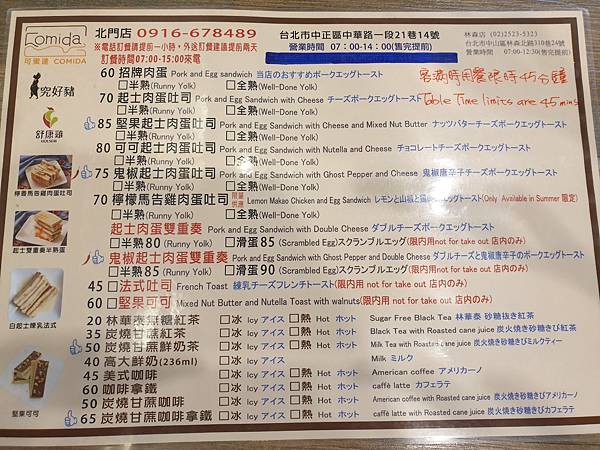 Comida
可蜜達 COMIDA
北門店 0916-678489
※電話訂餐請提前一小時，外送訂餐建議提前兩天
訂餐時間07:00-15:00來電
台北市中正區中華路一段21巷14號
營業時間 07：00-14：00(售完提前)
林森店 (02)2523-5323
台北市中山區林森北路310巷24號
營業時間 07:00-12:30(售完提前)
客滿時用餐限時45分鐘
Table Time limits are 45 mins
究好豬
舒康雞
檸香馬告雞肉蛋吐司
起士雙重奏半熟蛋
白起士煉乳法式
堅果可可
60 招牌肉蛋 Pork and Egg sandwich 当店のおすすめポークエッグトースト
□半熟(Runny Yolk) □全熟(Well-Done Yolk)
70 起士肉蛋吐司 Pork and Egg Sandwich with Cheese チーズポークエッグトースト
□半熟(Runny Yolk) □全熟(Well-Done Yolk)
85 堅果起士肉蛋吐司 Pork and Egg Sandwich with Cheese and Mixed Nut Butter ナッツバターチーズポークエッグトースト
□半熟(Runny Yolk) □全熟(Well-Done Yolk)
80 可可起士肉蛋吐司 Pork and Egg Sandwich with Nutella and Cheese チョコレートチーズポークエッグトースト
□半熟(Runny Yolk) □全熟(Well-Done Yolk)
75 鬼椒起士肉蛋吐司 Pork and Egg Sandwich with Ghost Pepper and Cheese 鬼椒唐辛子チーズポークエッグトースト
□半熟(Runny Yolk) □全熟(Well-Done Yolk)
70 檸檬馬告雞肉蛋吐司 Lemon Makao Chicken and Egg Sandwich (Only Available in Summer 限定)
□半熟(Runny Yolk) □全熟(Well-Done Yolk)
起士肉蛋雙重奏 Pork and Egg Sandwich with Double Cheese ダブルチーズポークエッグトースト
□半熟80 (Runny Yolk) □滑蛋85 (Scrambled Egg)スクランブルエッグ(限内用not for take out 店内のみ)
鬼椒起士肉蛋雙重奏 Pork and Egg Sandwich with Ghost Pepper and Double Cheese ダブルチーズと鬼椒唐辛子のポークエッグトースト
□半熟85 (Runny Yolk) □滑蛋90 (Scrambled Egg)スクランブルエッグ(限内用not for take out 店内のみ)
45 □法式吐司 French Toast 練乳チーズフレンチトースト(限内用 not for take out 店内のみ)
60 □堅果可可 Mixed Nut Butter and Nutella Toast with walnuts(限内用 not for take out 店内のみ)
20 林華泰無糖紅茶 □冰 Icy アイス □熱 Hot ホット Sugar Free Black Tea 林華泰 砂糖抜き紅茶
35 炭燒甘蔗紅茶 □冰 Icy アイス □熱 Hot ホット Black Tea with Roasted cane juice 炭火焼き砂糖きび紅茶
50 炭燒甘蔗鮮奶茶 □冰 Icy アイス □熱 Hot ホット Milk Tea with Roasted cane juice 炭火焼き砂糖きびミルクティー
40 高大鮮奶(236ml) □冰 Icy アイス □熱 Hot ホット Milk ミルク
45 美式咖啡 □冰 Icy アイス □熱 Hot ホット American coffee アメリカーノ
60 咖啡拿鐵 □冰 Icy アイス □熱 Hot ホット caffè latte カフェラテ
50 炭燒甘蔗咖啡 □冰 Icy アイス □熱 Hot ホット American coffee with Roasted cane juice 炭火焼き砂糖きびアメリカーノ
65 炭燒甘蔗咖啡拿鐵 □冰 Icy アイス □熱 Hot ホット caffè latte with Roasted cane juice 炭火焼き砂糖きびカフェラテ